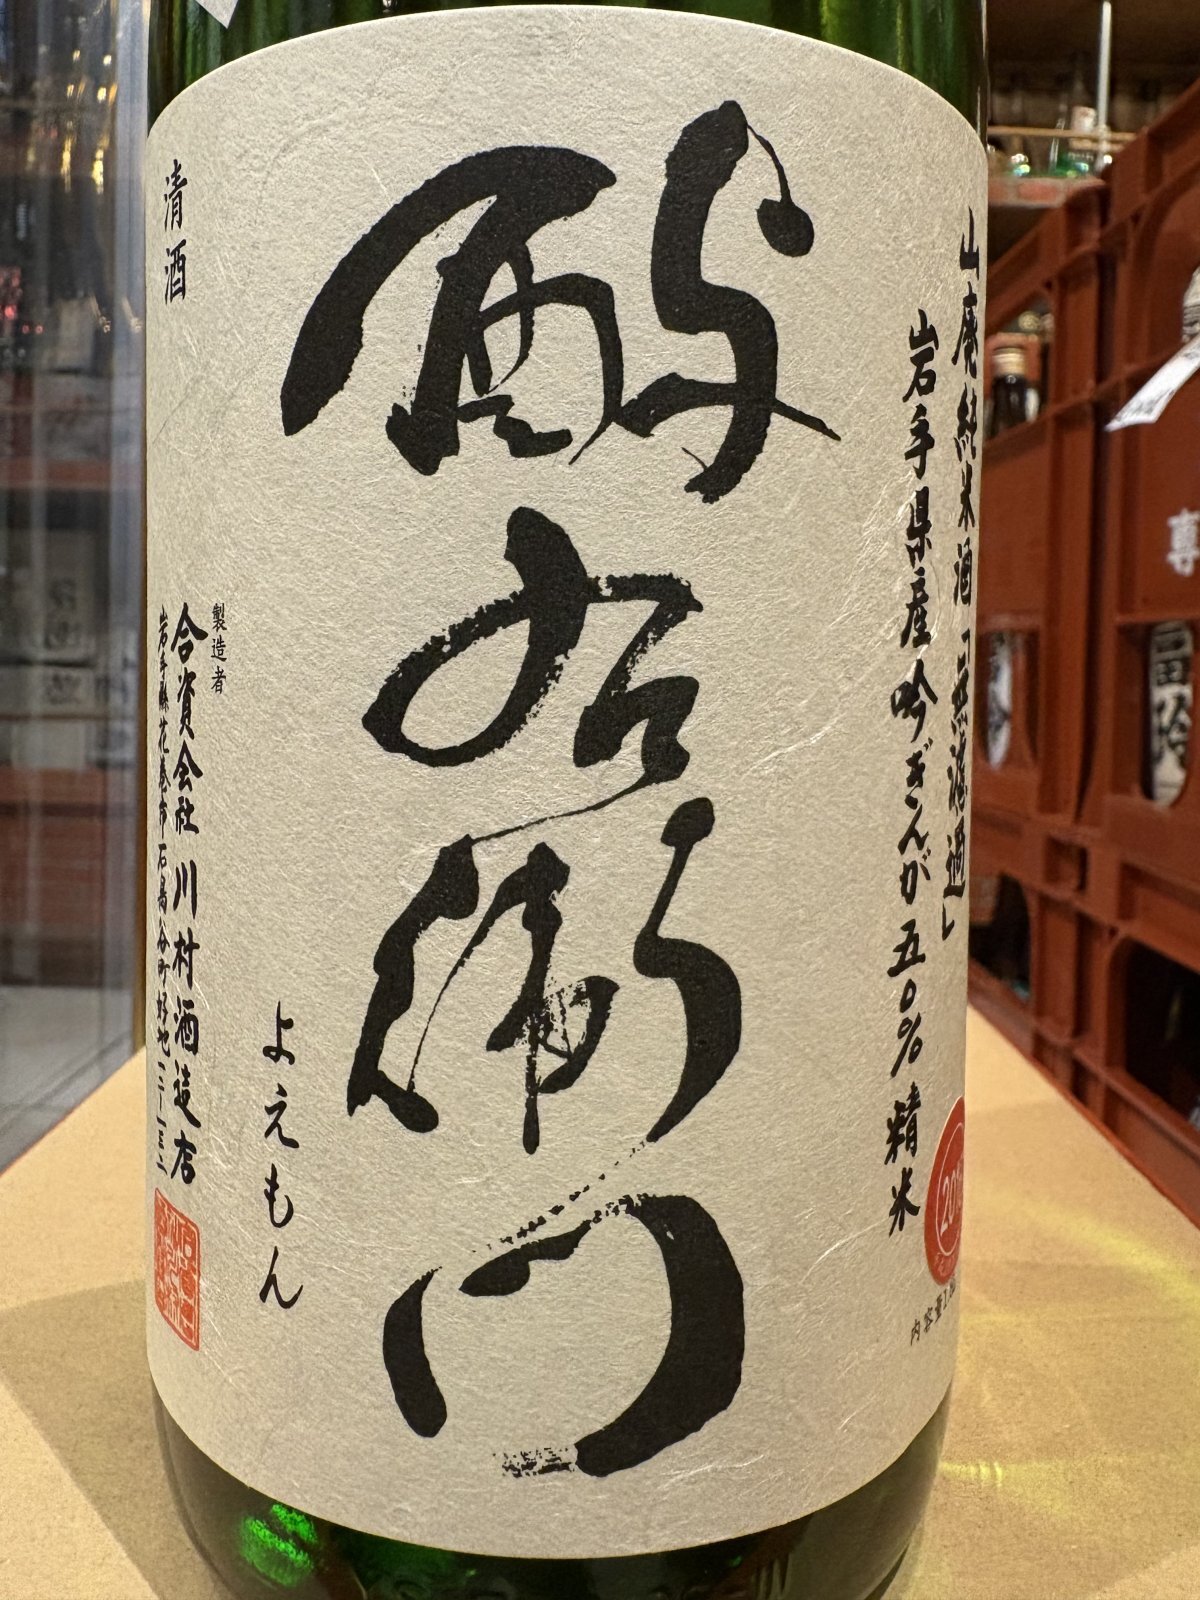 山廃純米酒「無濾過」
岩手県産吟ぎんが五〇%精米
内容量1.8
酉与右衛門
よえもん
清酒
製造者
合資会社川村酒造店
岩手縣花巻市石鳥谷町好地一二ー一三二
専